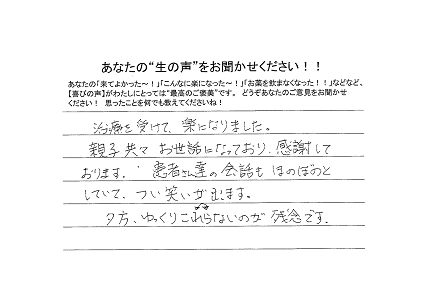 あなたの“生の声”をお聞かせください！！
あなたの「来てよかった～！」「こんなに楽になった～！」「お薬を飲まなくなった！！」などなど、
【喜びの声】がわたしにとっては“最高のご褒美”です。 どうぞあなたのご意見をお聞かせ
ください！ 思ったことを何でも教えてくださいね！
治療を受けて、楽になりました。
親子共々 お世話になっており、感謝して
おります。 患者さん達の会話も ほのぼのと
していて、つい笑いが出ます。
夕方、ゆっくりこれらないのが 残念です。